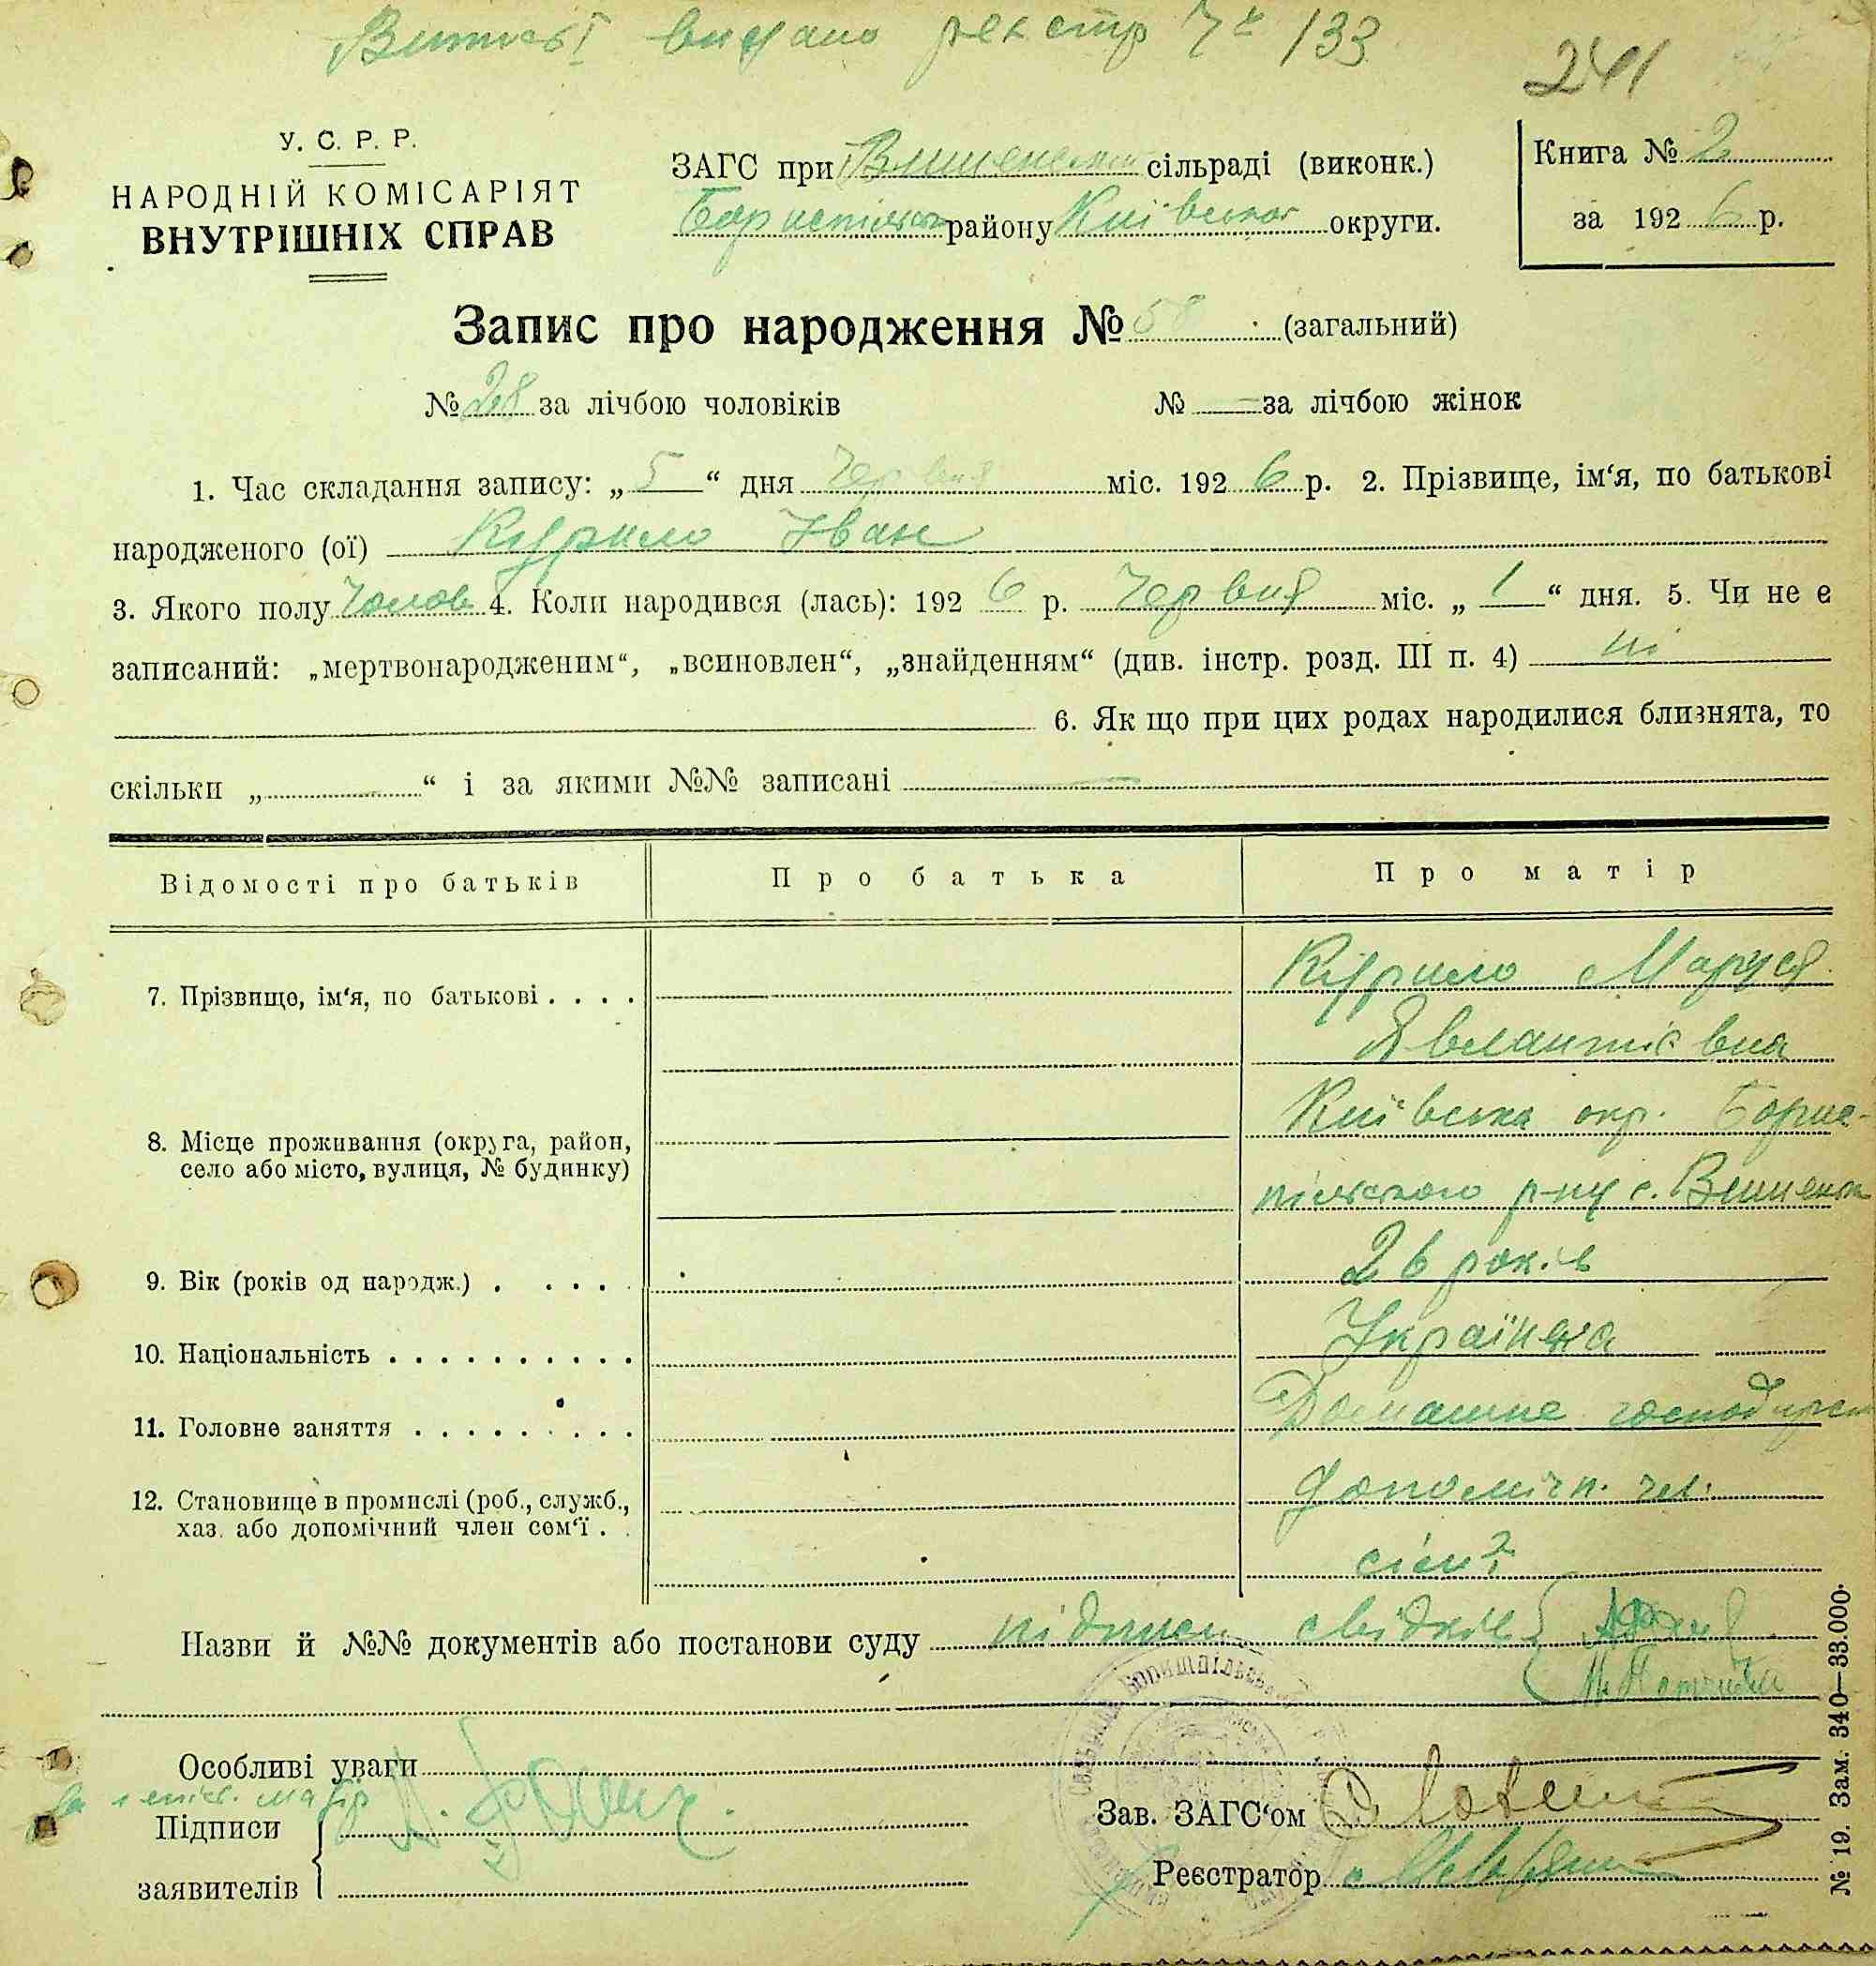 видано реєстр № 133
241
У. С. Р. Р.
НАРОДНІЙ КОМІСАРІЯТ
ВНУТРІШНІХ СПРАВ
ЗАГС при Вишенській сільраді (виконк.)
Бориспільськ району Київської округи.
Книга № 2
за 1926 р.
Запис про народження № 58 (загальний)
№ 28 за лічбою чоловіків № — за лічбою жінок
1. Час складання запису: „5“ дня Червня міс. 1926 р. 2. Прізвище, ім‘я, по батькові
народженого (ої) Курило Іван
3. Якого полу Чолов 4. Коли народився (лась): 1926 р. Червня міс. „1“ дня. 5. Чи не є
записаний: „мертвонародженим“, „всиновлен“, „знайденням“ (див. інстр. розд. III п. 4) ні
6. Як що при цих родах народилися близнята, то
скільки „ — “ і за якими №№ записані —
Відомості про батьків Про батька Про матір
7. Прізвище, ім‘я, по батькові . . . . Курило Маруся
8. Місце проживання (округа, район, Київська окр. Борис-
село або місто, вулиця, № будинку) пільського р-ну с. Вишеньки
9. Вік (років од народж.) . . . . 26 років
10. Національність . . . . . . . . . . Українка
11. Головне заняття . . . . . . . . . Домашнє господарст
12. Становище в промислі (роб., служб., допомічн. чл.
хаз. або допомічний член сем‘ї . . сім‘ї
Назви й №№ документів або постанови суду підписи свідків
Особливі уваги
матір
Підписи
заявителів
Зав. ЗАГС‘ом
Реєстратор
№ 19. Зам. 340—33.000.